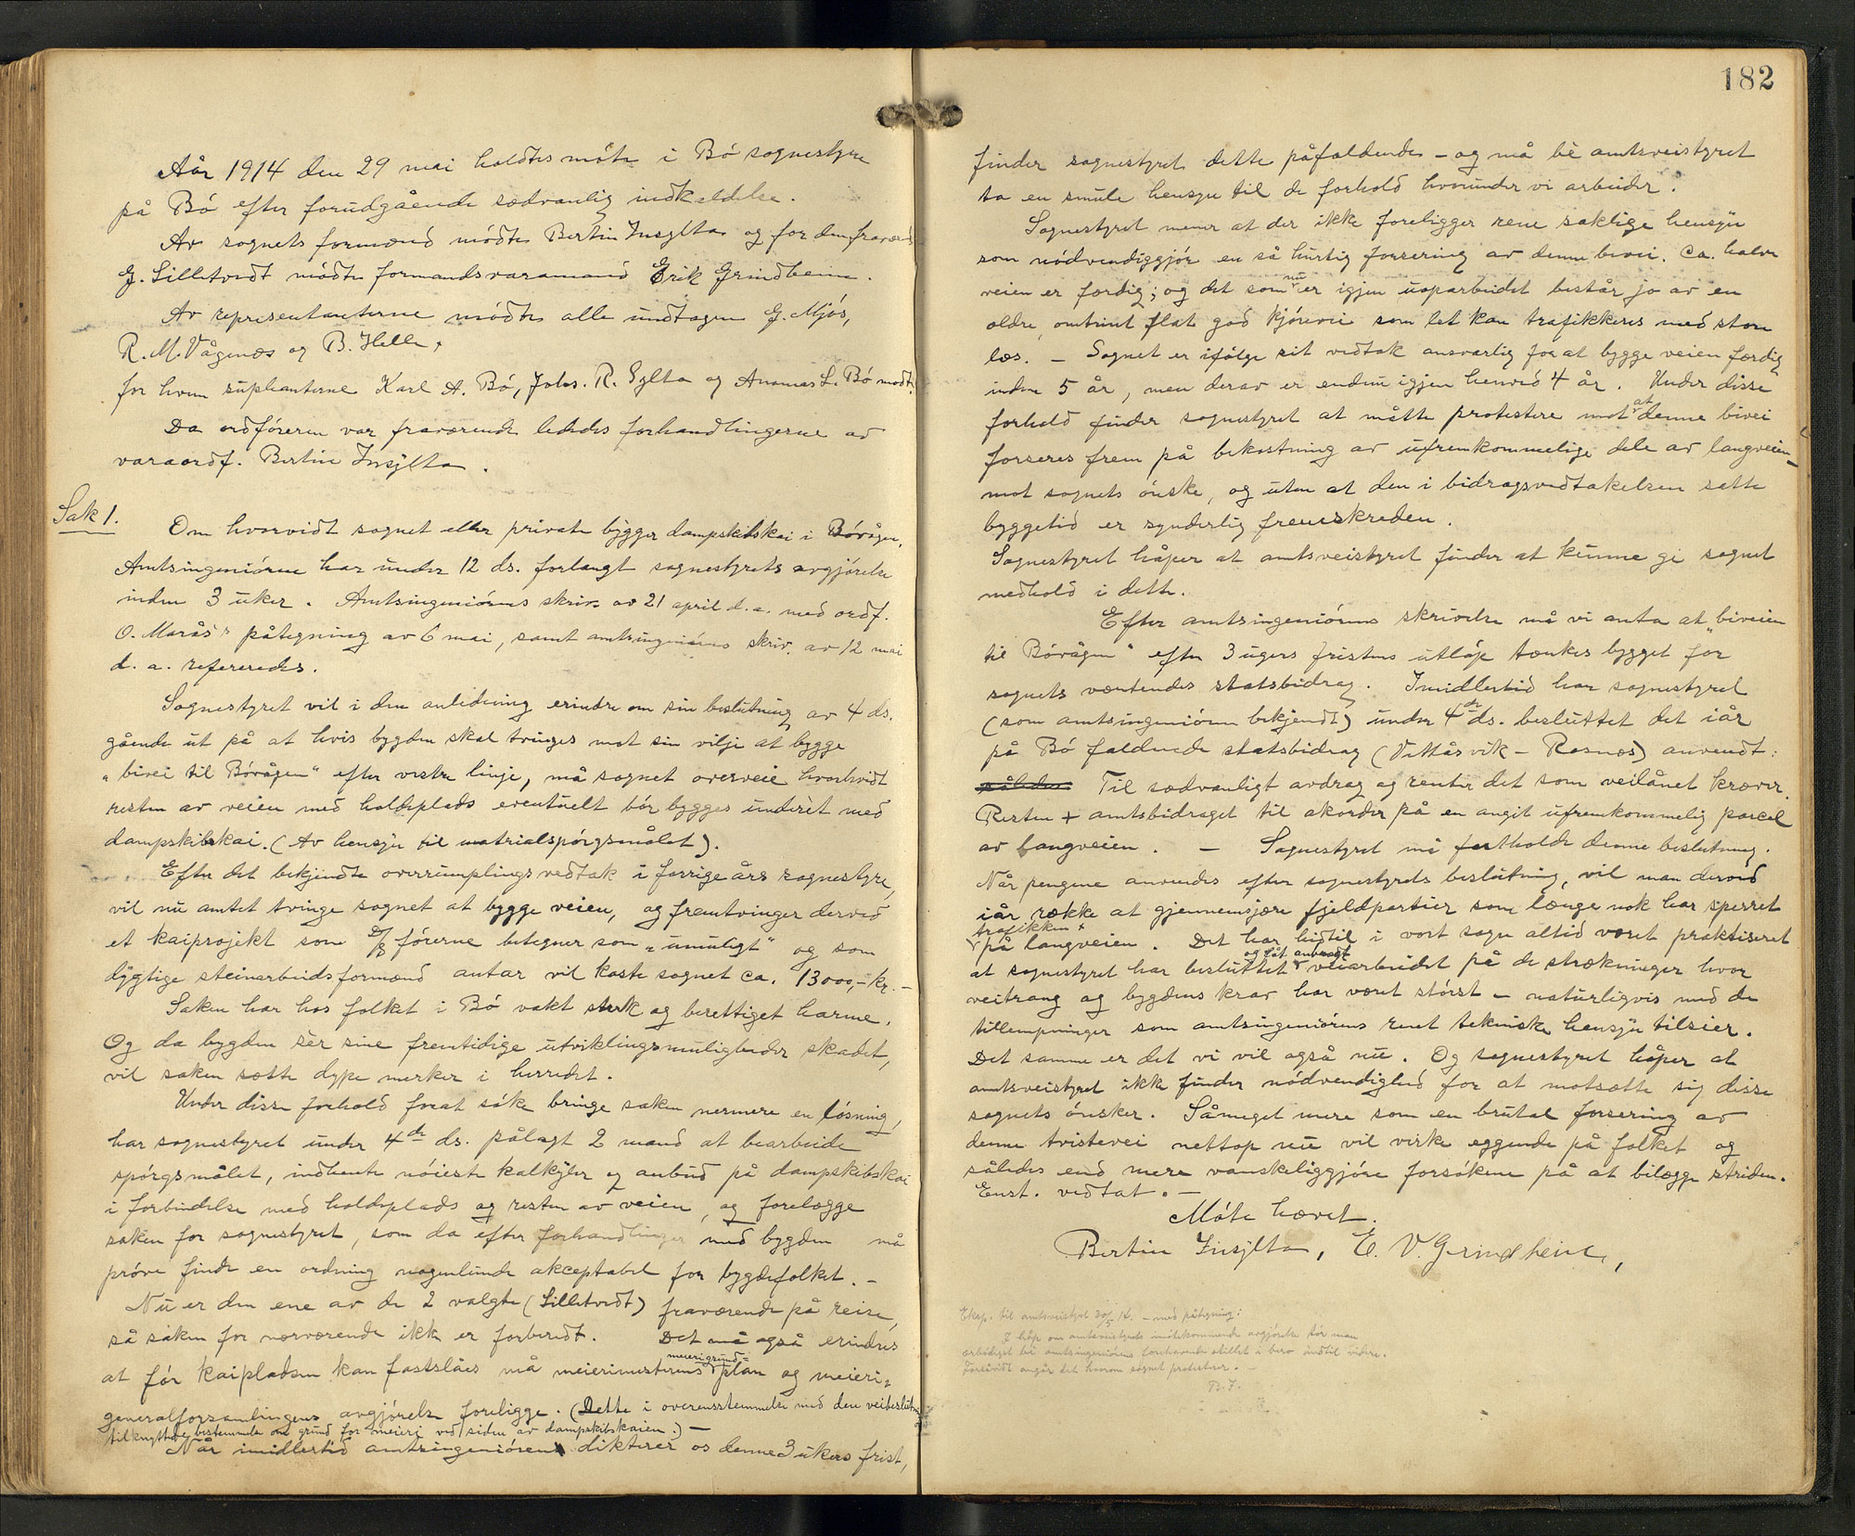 Aår 1914 den 29 mai holdtes møte i Bö sognestyre
på Bö efter forudgående sedvanlig indkaldelse.
Av sognets formænd mödte Bertin Insylta og for den fraværend
G. Silletvedt mödte formandsvaramand Erik Grindheim.
Av repræsentanterne mödte alle undtagen G. Mjös,
R. M. Vågenæs og B. Helle,
for hvem suplianterne Karl A. Bö, Johs. R. Sylta og Anomas L. Bö mödt.
Da ordföreren var fraværende lededes forhandlingerne av
varaordf. Bertin Insylta.
Sak 1.
Om hvorvidt sognet eller private bygger dampskibskai i Börågen.
Amtsingeniören har under 12 ds. forlangt sognestyrets avgjörelse
inden 3 uker. Amtsingeniörens skriv. av 21 april d.a. med ordf.
O. Marås's påtegning av 6 mai, samt amtsingeniörens skriv. av 12 mai
d.a. refereredes.
Sognestyret vil i den anledning erindre om sin beslutning av 4 ds.
gående ut på at hvis bygden skal tvinges mot sin vilje at bygge
"bivei til Börågen" efter vestre linje, må sognet overveie hvorhvidt
resten av veien med holdeplads eventuelt bör bygges underet med
dampskibskai. (Av hensyn til matrialspörgsmålet).
Efter det bekjendte overrumplingsvedtak i forrige års sognestyre,
vil nu amtet tvinge sognet at bygge veien, og fremtvinger derved
et kaiprojekt som D/S förerne betegner som "umuligt" og som
dygtige steinarbeidsformænd antar vil koste sognet ca. 13000,- kr. -
Saken har hos folket i Bö vakt sterk og berettiget harme.
Og da bygden sèr sine fremtidige utviklingsmuligheder skadet,
vil saken sætte dype merker i herredet.
Under disse forhold forat söke bringe saken nermere en lösning,
har sognestyret under 4de ds. pålagt 2 mand at bearbeide
spörgsmålet, indhente nöieste kalkyler og anbud på dampskibskai
i forbindelse med holdeplads og resten av veien, og forelægge
saken for sognestyret, som da efter forhandlinger med bygden må
pröve finde en ordning nogenlunde akceptabel for bygdefolket. -
Nu er den ene av de 2 valgte (Silletvedt) fraværende på reise,
så saken for nærværende ikke er forberedt. Det må også erindres
at för kaipladsen kan fastslåes må meierimesterens meierigrund= plan og meieri-
generalforsamlingens avgjörelse foreligge. (Dette i overensstemmelse med den veibeslutn.
tilknyttede bestemmelse om grund for meieri ved siden av dampskibskaien.) -
Når imidlertid amtsingeniören dikterer os denne 3 ukers frist,
182
finder sognestyret dette påfaldende - og må bè amtsveistyret
ta en smule hensyn til de forhold hvorunder vi arbeider.
Sognestyret mener at der ikke foreligger rene saklige hensyn
som nödvendiggjör en så hurtig forsering av denne bivei. Ca. halve
veien er færdig; og det som nu er igjen uoparbeidet består jo av en
ældre, omtrint flat god kjörevei som let kan trafikkeres med store
læs. - Sognet er ifölge sit vedtak ansvarlig for at bygge veien færdig
inden 5 år, men derav er endnu igjen henved 4 år. Under disse
forhold finder sognestyret at måtte protestere mot at denne bivei
forseres frem på bekostning av ufremkommelige dele av langveien -
mot sognets önske, og uten at den i bidragsvedtakelsen satte
byggetid er synderlig fremskreden.
Sognestyret håper at amtsveistyret finder at kunne gi sognet
medhold i dette.
Efter amtsingeniörens skrivelse må vi anta at "biveien
til Börågen" efter 3 ugers fristens utlöp tænkes bygget for
sognets væntendes statsbidrag. Imidlertid har sognestyret
(som amtsingeniören bekjendt) under 4de ds. besluttet det iår
på Bö faldende statsbidrag (Vettåsvik - Rosnæs) anvendt:
Til sædvanligt avdrag og renter det som veilånet kræver.
Resten + amtsbidraget til akorder på en angit ufremkommelig parcel
av langveien. - Sognestyret må fastholde denne beslutning.
Når pengene anvendes efter sognestyrets beslutning, vil man derved
iår række at gjennemsjære fjeldpartier som længe nok har sperret
trafikken på langveien. Det har hidtil i vort sogn altid været praktiseret
at sognestyret har besluttet og låt anbragt veiarbeidet på de strækninger hvor
veitrang og bygdens krav har været störst - naturligvis med de
tillempninger som amtsingeniörens rent tekniske hensyn tilsier.
Det samme er det vi vil også nu. Og sognestyret håper at
amtsveistyret ikke finder nödvendighed for at motsætte sig disse
sognets önsker. Såmeget mere som en brutal forsering av
denne tvistevei nettop nu vil virke eggende på folket og
således end mere vanskeliggjöre forsökene på at bilægge striden.
Enst. vedtat. -
Möte hævet.
Bertin Insylta, E. V. Grindheim,
Eksp. til amtsveistyret 30/5 14. - med påtegning:
I håp om amtsveistyrets imötekommende avgjörelse bör man
arbeidet bli amtsingeniören foreholdt stillet i bero indtil videre.
Forsåvidt angår det hvorom sognet protesterer. -
B. I.